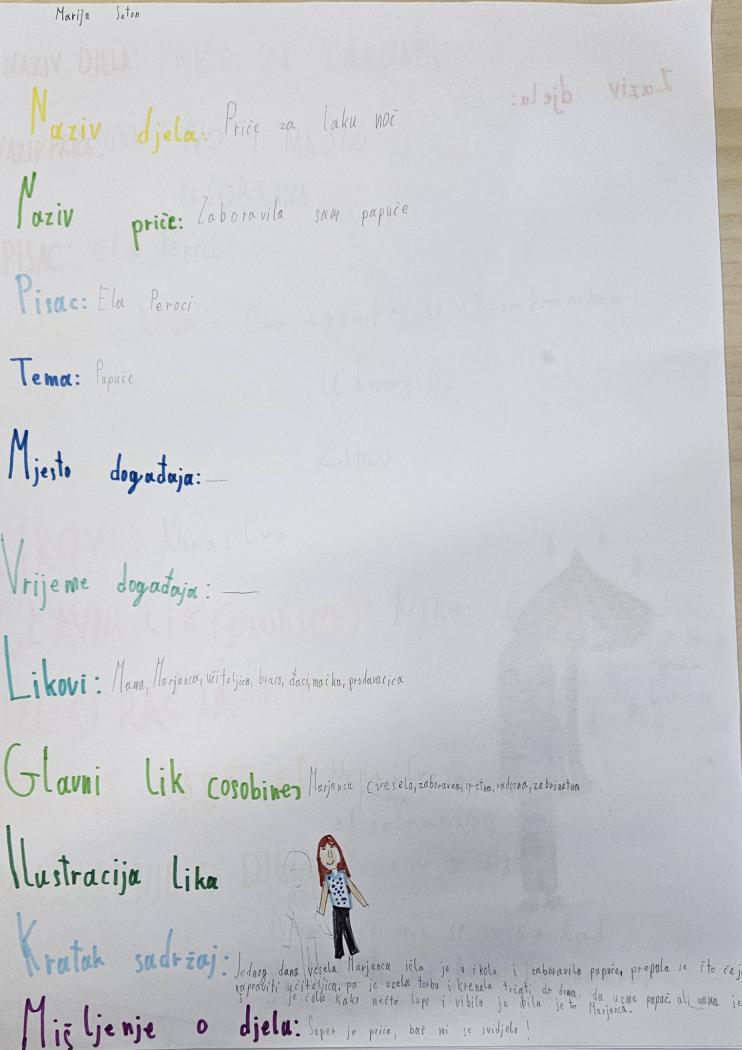 Marija Saton
Naziv djela: Priče za laku noč
Naziv priče: Zaboravila sam papuče
Pisac: Ela Peroci
Tema: Papuče
Mjesto događaja: —
Vrijeme događaja: —
Likovi: Mama, Marjanca, učiteljica, braco, đaci, mačka, prodavačica
Glavni lik (osobine) Marjanca (vesela, zaboravna, sretna, radosna, zabrinuta
Ilustracija lika
Kratak sadržaj: Jednog dana vesela Marjanca išla je u školu i zaboravila papuče, prepala se što će joj
napraviti učiteljica, pa je uzela torbu i krenula trčati do doma da uzme papuč. ali mama je
je čula kako nešto lupo i vibila je bila je to Marjanca.
Mišljenje o djela: Super je priča, baš mi se svidjela!